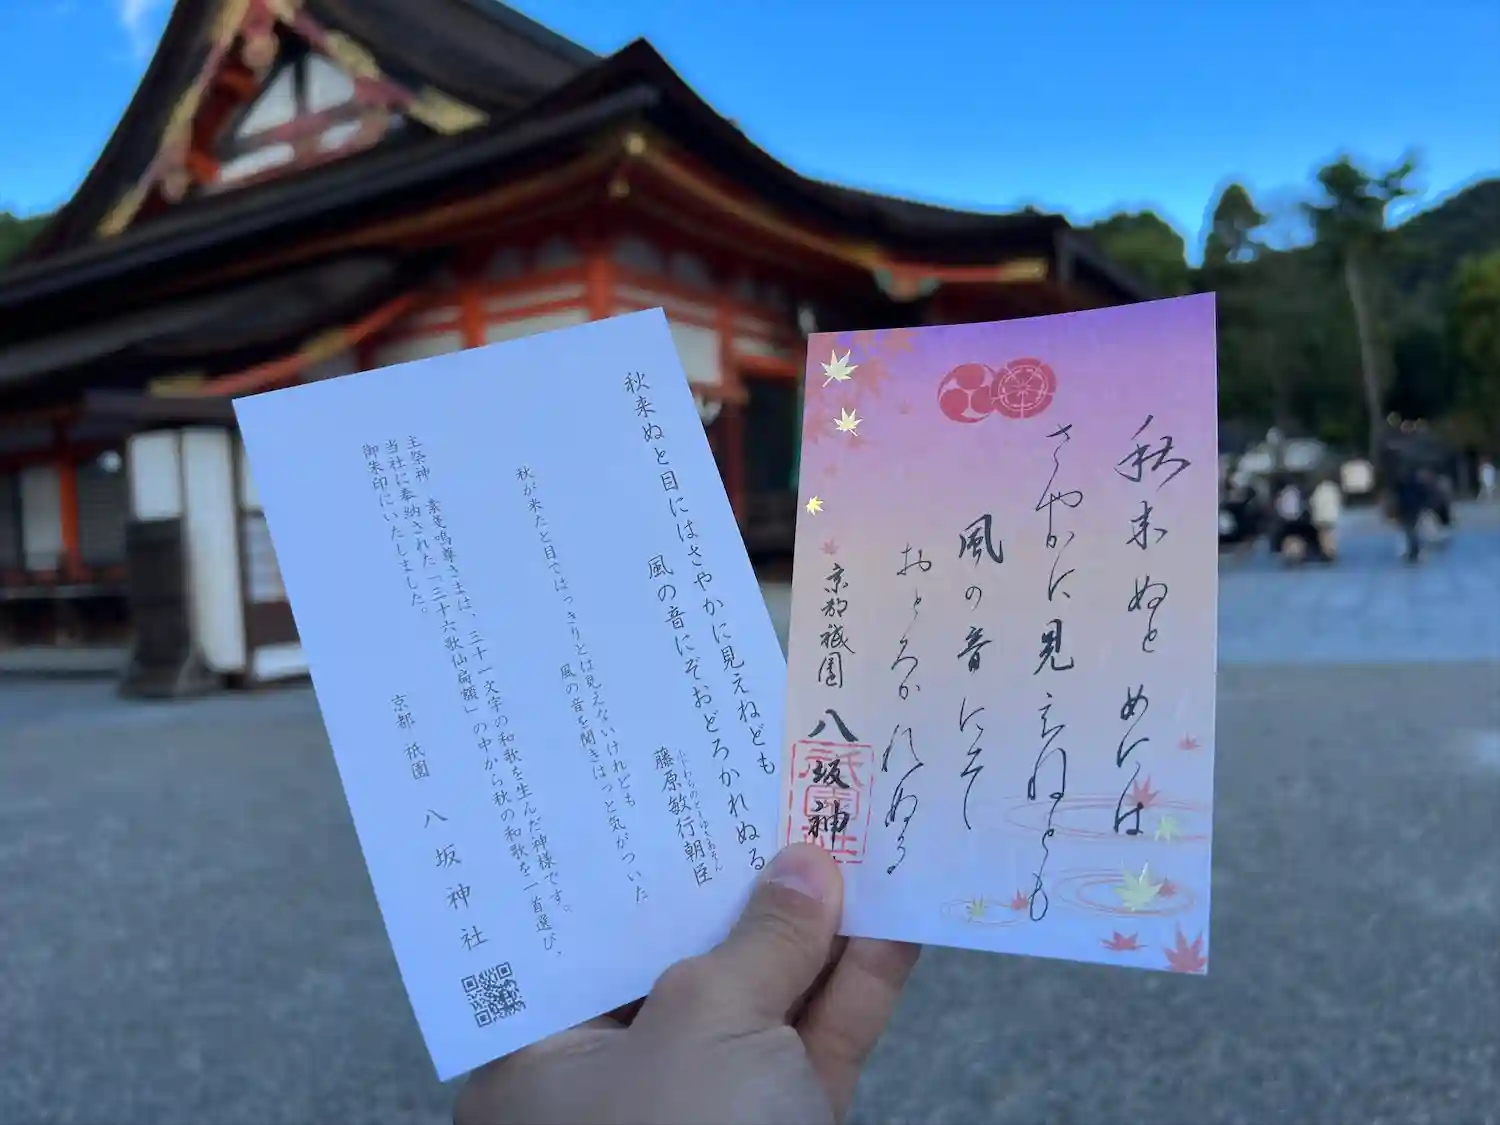 秋来ぬと目にはさやかに見えねども
風の音にぞおどろかれぬる
藤原敏行朝臣
ふじわらのとしゆきあそん
秋が来たと目ではっきりとは見えないけれども
風の音を聞きはっと気がついた
主祭神 素戔嗚尊さまは、三十一文字の和歌を生んだ神様です。
当社に奉納された「三十六歌仙扁額」の中から秋の和歌を一首選び、
御朱印にいたしました。
京都 祇園 八坂神社
秋来ぬとめには
さやかに見えねども
風の音にそ
おとろかれぬる
京都祇園 八坂神